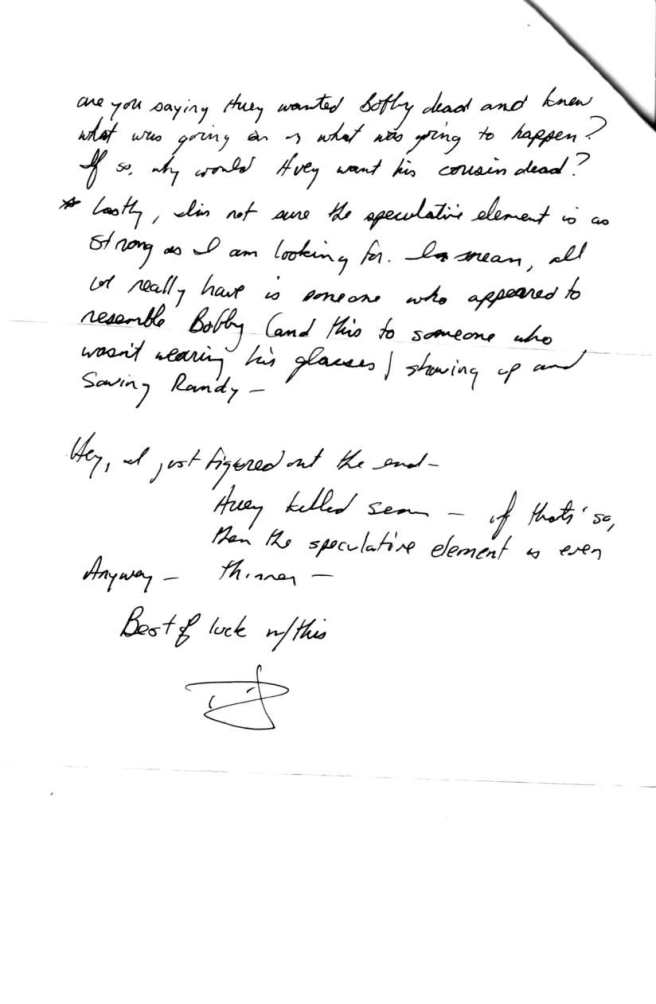 are you saying Huey wanted Bobby dead and knew
what was going on or what was going to happen?
If so, why would Huey want his cousin dead?
* Lastly, I'm not sure the speculative element is as
strong as I am looking for. I mean, all
we really have is someone who appeared to
resemble Bobby (and this to someone who
wasn't wearing his glasses) showing up and
Saving Randy —
Hey, I just figured out the end —
Huey killed Sean — if that's so,
then the speculative element is even
Anyway — thinner —
Best of luck w/this